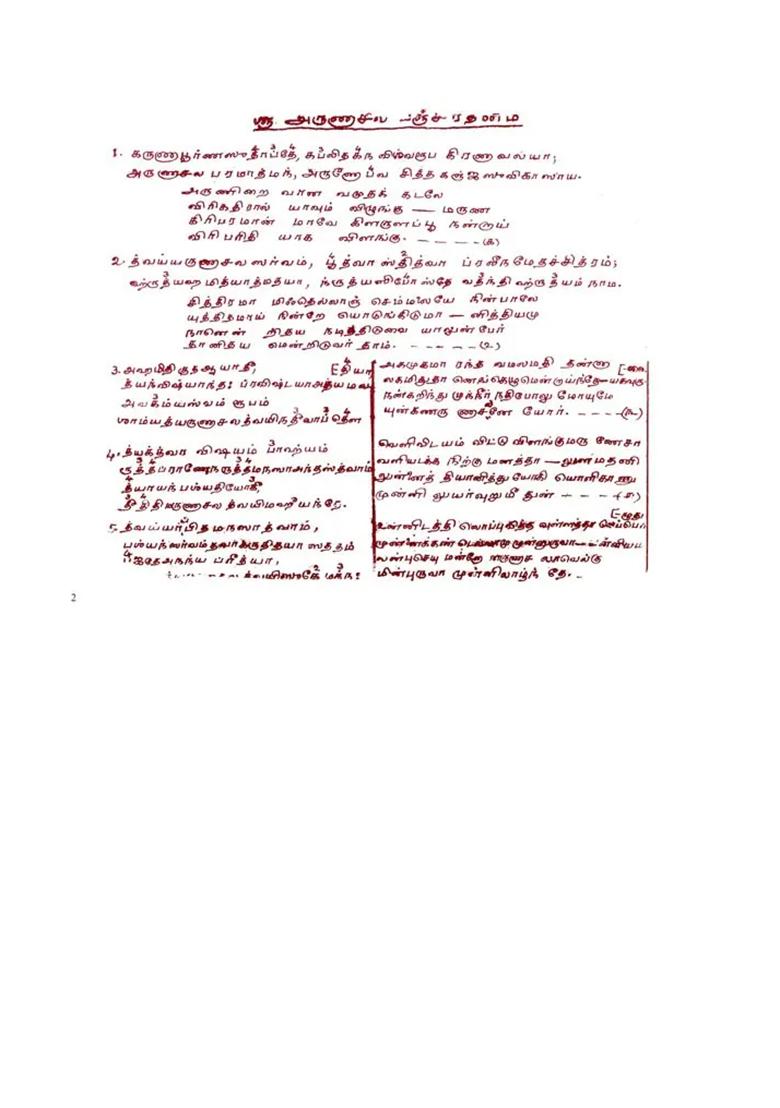 ஸ்ரீ அருணாசல பஞ்சரதனம்
1. கருணாபூர்ணஸுதாப்தே, கப்லிதகந விஶ்வரூப கிரணாவல்யா;
அருணாசல பரமாத்மந், அருணோபவ சித்தகஞ்ஜஸுவிகாஸாய.
அருணிறை வான வமுதக் கடலே
விரிகதிரால் யாவும் விழுங்கு — மருண
கிரிபரமான் மாவே கிளருளப்பூ நன்றாய்
விரிபரிதி யாக விளங்கு. – – – – (க)
2. த்வய்யருணாசல ஸர்வம், பூத்வா ஸ்தித்வா ப்ரலீநமேதச்சித்ரம்;
ஹ்ருத்யஹமித்யாத்மதயா, ந்ருத்யஸிபோஸ்தே வதந்தி ஹ்ருதயம் நாம.
சித்திரமா மிஃதெல்லாஞ் செம்மலையே நின்பாலே
யுத்திதமாய் நின்றே யொடுங்கிடுமா — னித்தியமு
நானென் றிதய நடித்திடுவை யாலுன்பேர்
தானிதய மென்றிடுவர் தாம். – – – – (௨)
3. அஹமிதிகுதஆயாதீ, [தியா
த்யந்விஷ்யாந்த: ப்ரவிஷ்டயாஅத்யமல
அவகம்யஸ்வம் ரூபம்
ஶாம்யத்யருணாசலத்வயிநதீவாப்தௌ
4. த்யக்த்வா விஷயம் பாஹ்யம்
ருத்தப்ராணேநருத்தமநஸாஅந்தஸ்த்வாம்
த்யாயந் பஶ்யதியோகீ,
தீதிமருணாசல த்வயிமஹீயந்தே.
5. த்வய்யர்பிதமநஸாத்வாம்,
பஶ்யந்ஸர்வம்தவாக்ருதிதயா ஸததம்
பஜதேஅநந்ய ப்ரீத்யா,
த்வயிஸுகே மக்ந:
அகமுகமா ரந்த வமலமதி தன்னா [-லை
லகமிதுதா னெங்கெழுமென்றாய்ந்தே—யகவுரு
நன்கறிந்து முந்நீர் நதிபோலு மோயுமே
யுன்கணரு ணாசலனே யோர். – – – – (௩)
வெளிவிடயம் விட்டு விளங்குமரு ணேசா
வளியடக்க நிற்கு மனத்தா — லுளமதனி
லுன்னைத் தியானித்து யோகி யொளிகாணு
முன்னி லுயர்வுறுமீ துன் – – – – (௪)
[-ழுது
உன்னிடத்தி லொப்புவித்த வுள்ளத்தா லெப்பொ
முன்னைக்கண் டெல்லாமு முன்னுருவா—யன்னியமி
லன்புசெயு மன்னோ னருணாச லாவெல்கு
மின்புருவா முன்னிலாழ்ந் தே.
2